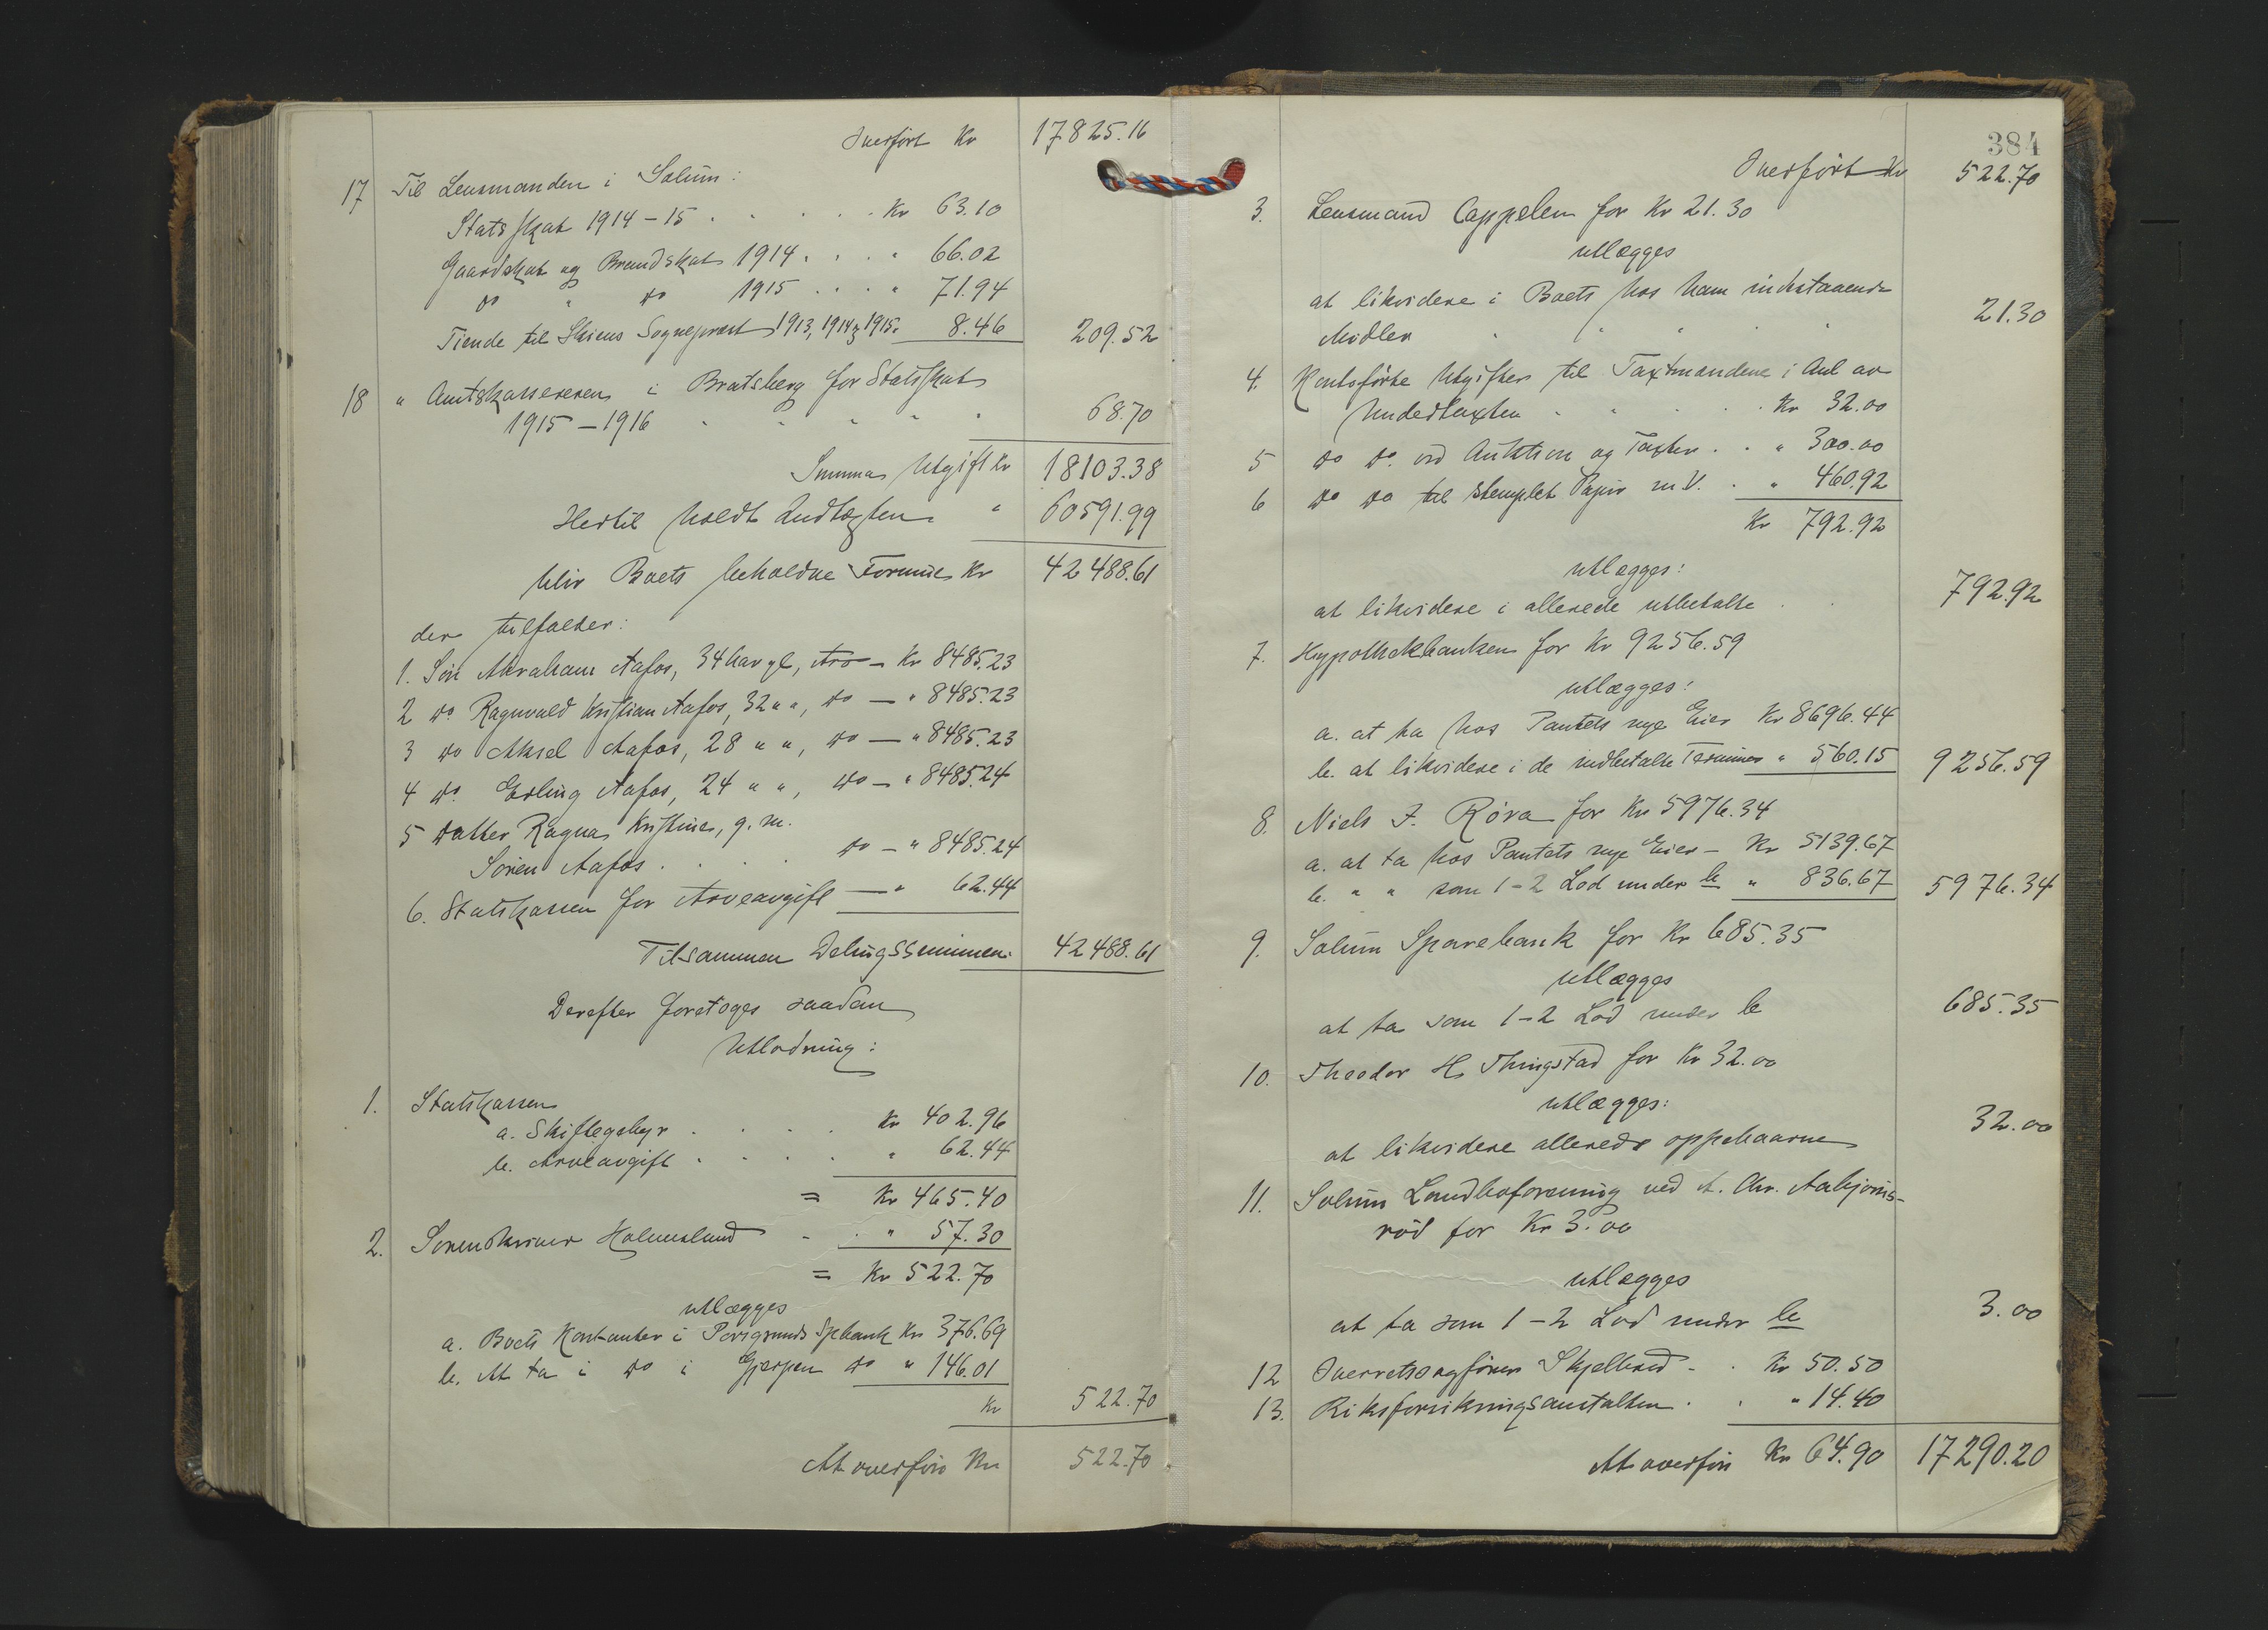 Overført Kr 17825.16
17 Til Lensmanden i Solum:
Statsskat 1914-15 . . . . . Kr 63.10
Gaardskat og Brandskat 1914 . . . " 66.02
do " do 1915 . . . . " 71.94
Tiende til Skiens Sogneprest 1913, 1914 & 1915. 8.46 209.52
18 " Amtskassereren i Bratsberg for Statsskat
1915-1916 " " " " " 68.70
Summa Utgift Kr 18103.38
Hertil holdt Indtægten " 60591.99
blir Boets beholdne Formue Kr 42488.61
der tilfalder:
1. Søn Abraham Aafos, 34 aar gl, Arv - Kr 8485.23
2 do Ragnvald Kristian Aafos, 32 " ", do - " 8485.23
3 do Aksel Aafos, 28 " ", do - " 8485.23
4 do. Erling Aafos, 24 " ", do - " 8485.24
5 Datter Ragna Kristine, g. m.
Søren Aafos . . . . do - " 8485.24
6. Statskassen for Arveavgift - " 62.44
Tilsammen Delingssummen. 42488.61
Derefter foretoges saadan
Utlodning:
1. Statskassen
a. Skiftegebyr . . . . Kr 402.96
b. Arveavgift . . . . " 62.44
= Kr 465.40
2. Sorenskriver Holmesland . . " 57.30
= Kr 522.70
utlægges
a. Boets Kontanter i Porsgrunds Spbank Kr 376.69
b. At ta i do i Gjerpen do " 146.01
Kr 522.70
At overføre Kr 522.70
384
Overført Kr 522.70
3. Lensmand Cappelen for Kr 21.30
utlægges
at likvidere i Boets hos ham indestaaende
Midler " " " " 21.30
4. Kontoførte Utgifter til Taxtmændene i Anl av
Undertaxten . . . . Kr 32.00
5 do do. ved Auktion og Taxter . . " 300.00
6 do do til stemplet Papir m.V. . " 460.92
Kr 792.92
utlægges:
at likvidere i allerede utbetalte . . 792.92
7. Hypothekbanken for Kr 9256.59
utlægges:
a. at ta hos Pantets nye Eier Kr 8696.44
b. at likvidere i de indbetalte Terminer " 560.15 9256.59
8. Niels J. Røra for Kr 5976.34
a. at ta hos Pantets nye Eier - Kr 5139.67
b. " " som 1-2 Lod under b " 836.67 5976.34
9. Solum Sparebank for Kr 685.35
utlægges
at ta som 1-2 Lod under b 685.35
10. Theodor H. Thingstad for Kr 32.00
utlægges:
at likvidere allerede oppebaarne 32.00
11. Solum Landboforening ved A. Chr. Aabjørns-
rød for Kr 3.00
utlægges
at ta som 1-2 Lod under b 3.00
12 Overretssagfører Skjelbred . . Kr 50.50
13. Riksforsikringsanstalten . . " 14.40
At overføre Kr 64.90 17290.20